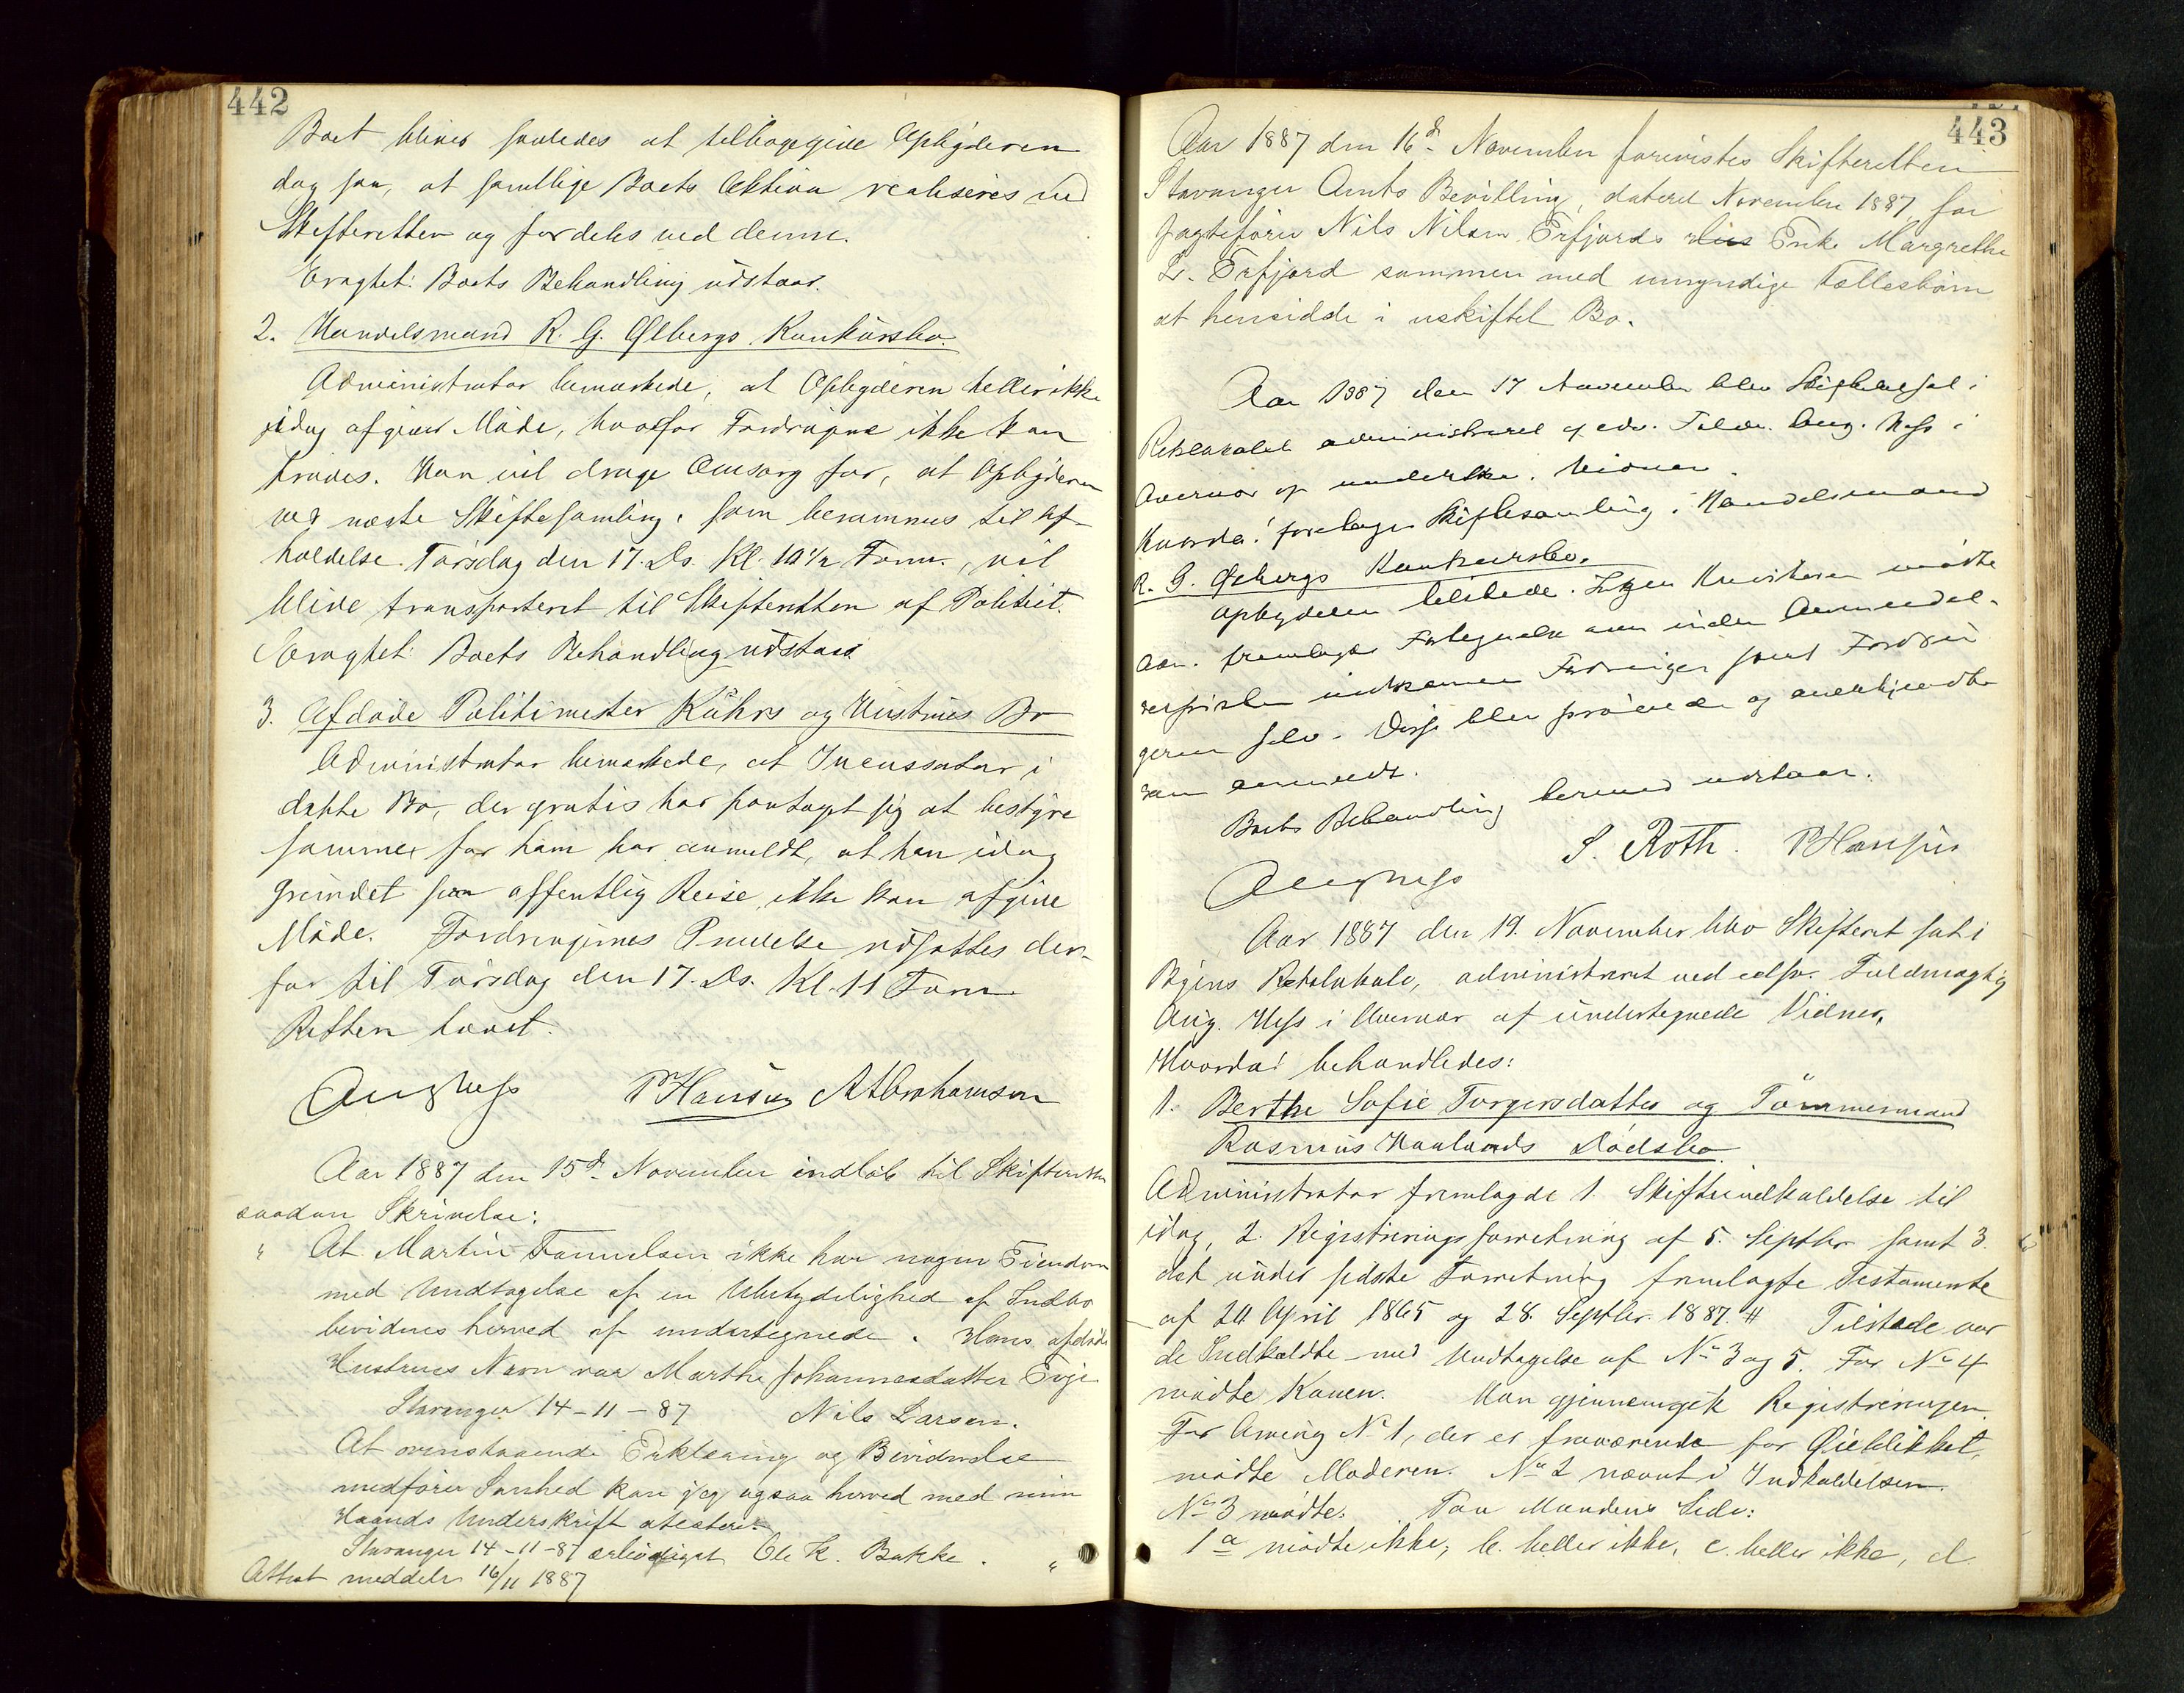 442
Boet bliver saaledes at tilbagegive Opbyderen
dog saa, at samtlige Boets Aktiva realiseres ved
Skifteretten og fordeles ved denne.
Eragtet: Boets Behandling udstaar.
2. Handelsmand R. G. Ølbergs Konkursbo.
Administrator bemærkede, at Opbyderen heller ikke
idag afgiver Møde, hvorfor Fordringene ikke kan
prøves. Han vil drage Omsorg for, at Opbyderen
ved næste Skiftesamling, som berammes til Af-
holdelse Torsdag den 17. Ds. Kl. 10 1/2 Form., vil
blive transporteret til Skifteretten af Politiet.
Eragtet: Boets Behandling udstaar
3. Afdøde Politimester Kührs og Hustrues Bo
Administrator bemærkede, at Incassator i
dette Bo, der gratis har paataget sig at bestyre
samme, for ham har anmeldt, at han idag
grundet paa offentlig Reise ikke kan afgive
Møde. Fordringernes Prøvelse udsattes der-
for til Torsdag den 17. Ds. Kl. 11 Form
Retten hævet.
Aug Hess P Hansen A Abrahamsen
Aar 1887 den 15de November indløb til Skifteretten
saadan Skrivelse:
" At Martin Tønnelsen ikke har nogen Eiendom
med Undtagelse af en Ubetydelighed af Indbo
bevidnes herved af undertegnede. Hans afdøde
Hustrues Navn var Marthe Johannesdatter Eeje
Stavanger 14-11-87 Nils Larsen.
At ovenstaaende Erklæring og Bevidnelse
medfører Sanhed kan jeg ogsaa herved med min
Haands Underskrift atestere.
Stavanger 14-11-87 ærbødigst Ole K. Bakke. "
Attest meddelt 16/11 1887
443
Aar 1887 den 16de November forevistes Skifteretten
Stavanger Amts Bevilling, dateret November 1887, for
Jagtefører Nils Nilsen Erfjords Enke Margrethe
L. Erfjord sammen med umyndige Fællesbørn
at hensidde i uskiftet Bo.
Aar 1887 den 17 November blev Skifteret sat i
Retslokalet administreret af edsv. Fuldm. Aug. Hess i
Overvær af undertegn. Vidner.
Hvorda! foretoges Skiftesamling i Handelsmand
R. G. Ølbergs Konkursbo.
Opbyderen tilstede. Ingen Kreditorer mødte
Adm. fremlagde Fortegnelse over inden Anmeldel-
sesfristen indkomne Fordringer samt Fordrin
gerne selv. Disse blev prøvede og anerkjendte
som anmeldt.
Boets Behandling hermed udstaar.
Aug Hess S. Roth. P Hansen
Aar 1887 den 19. November blev Skifteret sat i
Byens Retslokale, administreret ved edsv. Fuldmægtig
Aug. Hess i Overvær af undertegnede Vidner,
Hvorda! behandledes:
1. Berthe Sofie Torgersdatter og Tömmermand
Rasmus Haalands Dødsbo.
Administrator fremlagde 1. Skifteindkaldelse til
idag, 2. Registreringsforretning af 5. Septbr samt 3.
det under sidste Forretning fremlagte Testamente
af 24 April 1865 og 28. Septbr. 1887. # Tilstede var
de Indkaldte med Undtagelse af No 3 og 5. For No 4
mødte Konen. Man gjennemgik Registreringen.
For Arving No 1, der er fraværende for Øieblikket,
mødte Moderen. No 2 nævnt i Indkaldelsen.
No 3 mødte. Paa Mandens Side:
1 a mødte ikke, b. heller ikke, c. heller ikke, d